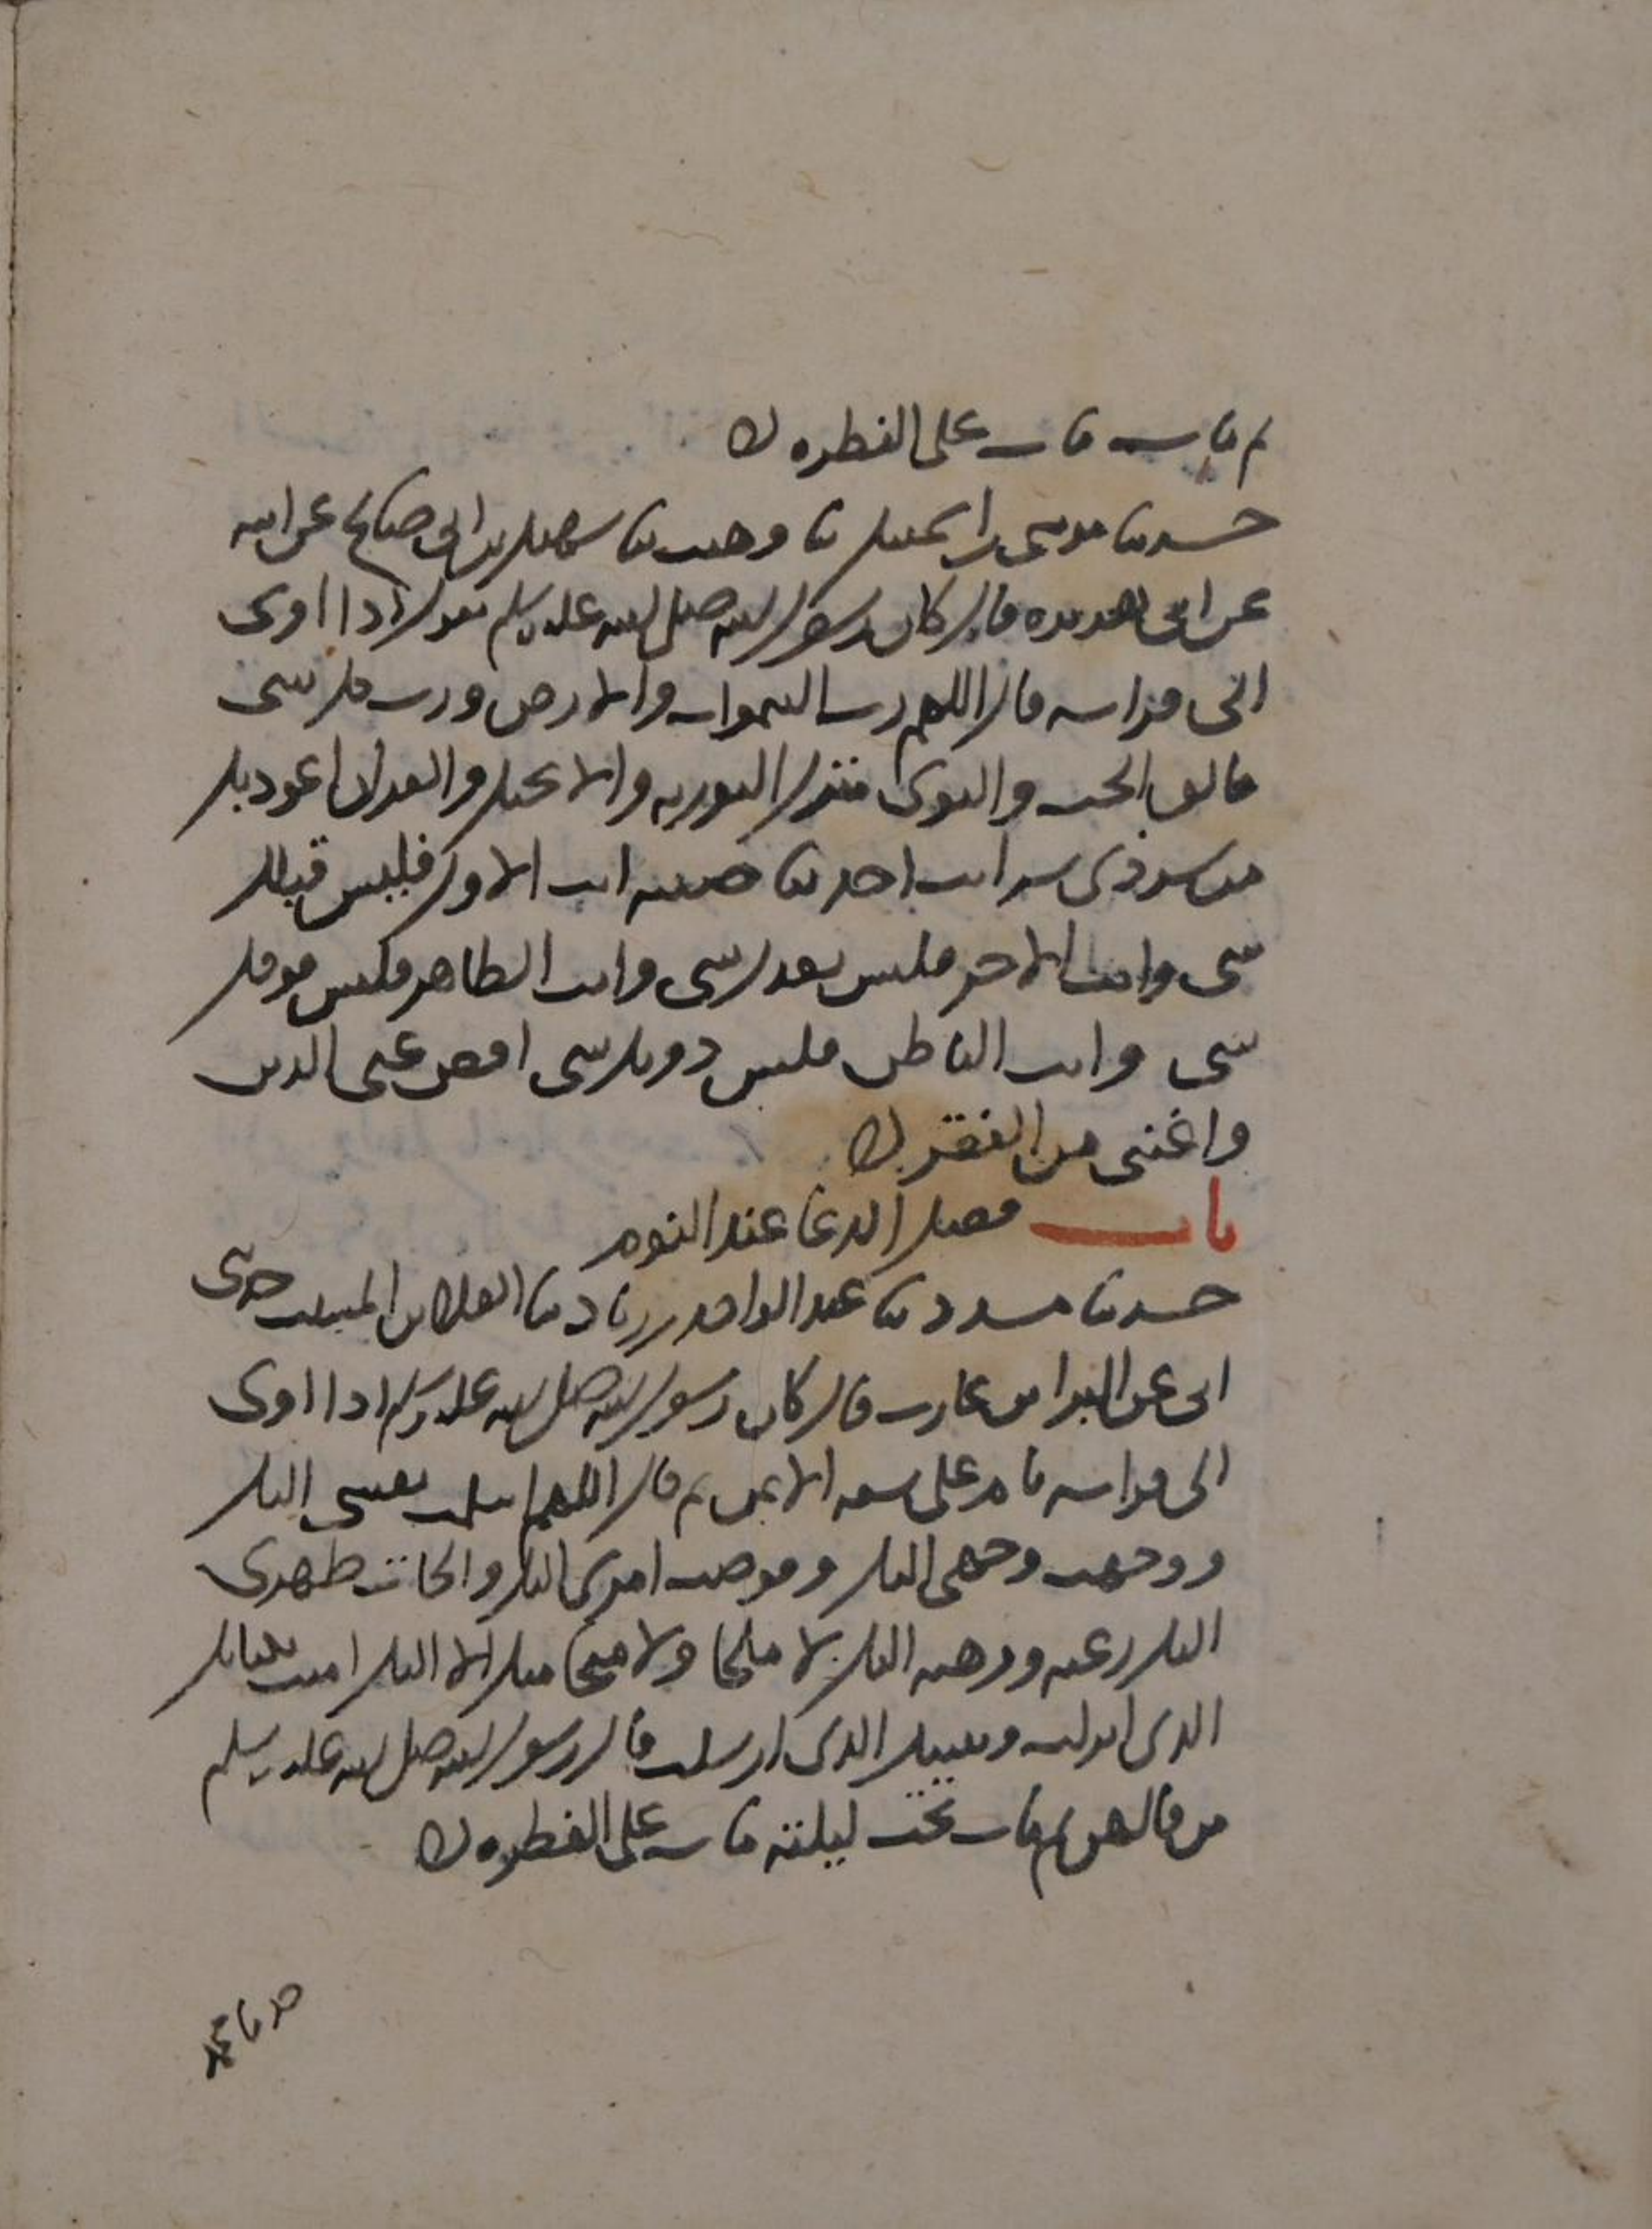 ثم مات مات على الفطرة
حدثنا موسى بن اسمعيل نا وهيب نا سهيل بن ابي صالح عن ابيه
عن ابي هريرة قال كان رسول الله صلى الله عليه وسلم يقول اذا اوى
الى فراشه قال اللهم رب السموات والارض ورب كل شي
فالق الحب والنوى منزل التورية والانجيل والقران اعوذ بك
من شر ذي شر انت اخذ بناصيته انت الاول فليس قبلك
شي وانت الاخر فليس بعدك شي وانت الظاهر فليس فوقك
شي وانت الباطن فليس دونك شي اقض عني الدين
واغنني من الفقر
باب فضل الدعا عند النوم
حدثنا مسدد نا عبد الواحد بن زياد نا العلا بن المسيب حدثني
ابي عن البرا بن عازب قال كان رسول الله صلى الله عليه وسلم اذا اوى
الى فراشه نام على شقه الايمن ثم قال اللهم اسلمت نفسي اليك
ووجهت وجهي اليك وفوضت امري اليك والجات ظهري
اليك رغبة ورهبة اليك لا ملجا ولا منجا منك الا اليك امنت بكتابك
الذي انزلت ونبيك الذي ارسلت قال رسول الله صلى الله عليه وسلم
من قالهن ثم مات تحت ليلته مات على الفطرة
حدثنا محمد